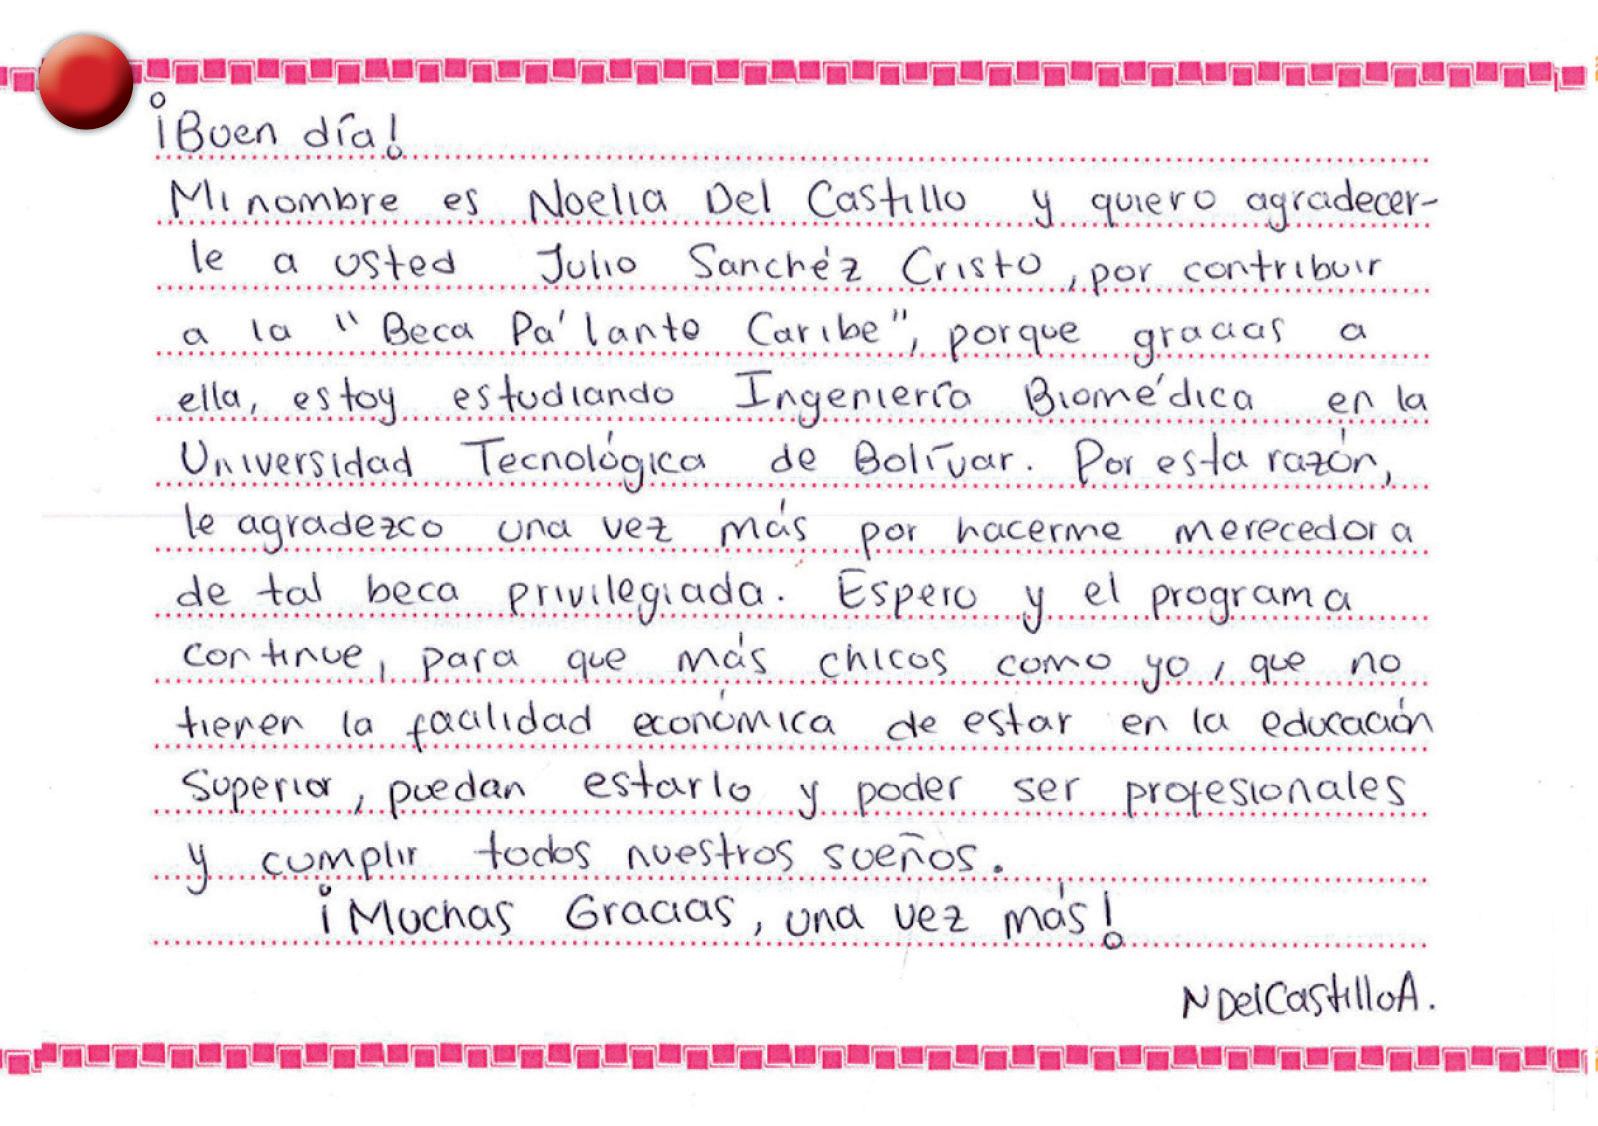 ¡Buen día!
Mi nombre es Noelia Del Castillo y quiero agradecer-
le a usted Julio Sanchéz Cristo, por contribuir
a la "Beca Pa'lante Caribe", porque gracias a
ella, estoy estudiando Ingeniería Biomédica en la
Universidad Tecnológica de Bolívar. Por esta razón,
le agradezco una vez más por hacerme merecedora
de tal beca privilegiada. Espero y el programa
continue, para que más chicos como yo, que no
tienen la facilidad económica de estar en la educación
Superior, puedan estarlo y poder ser profesionales
y cumplir todos nuestros sueños.
¡Muchas Gracias, una vez más!
NDelCastilloA.